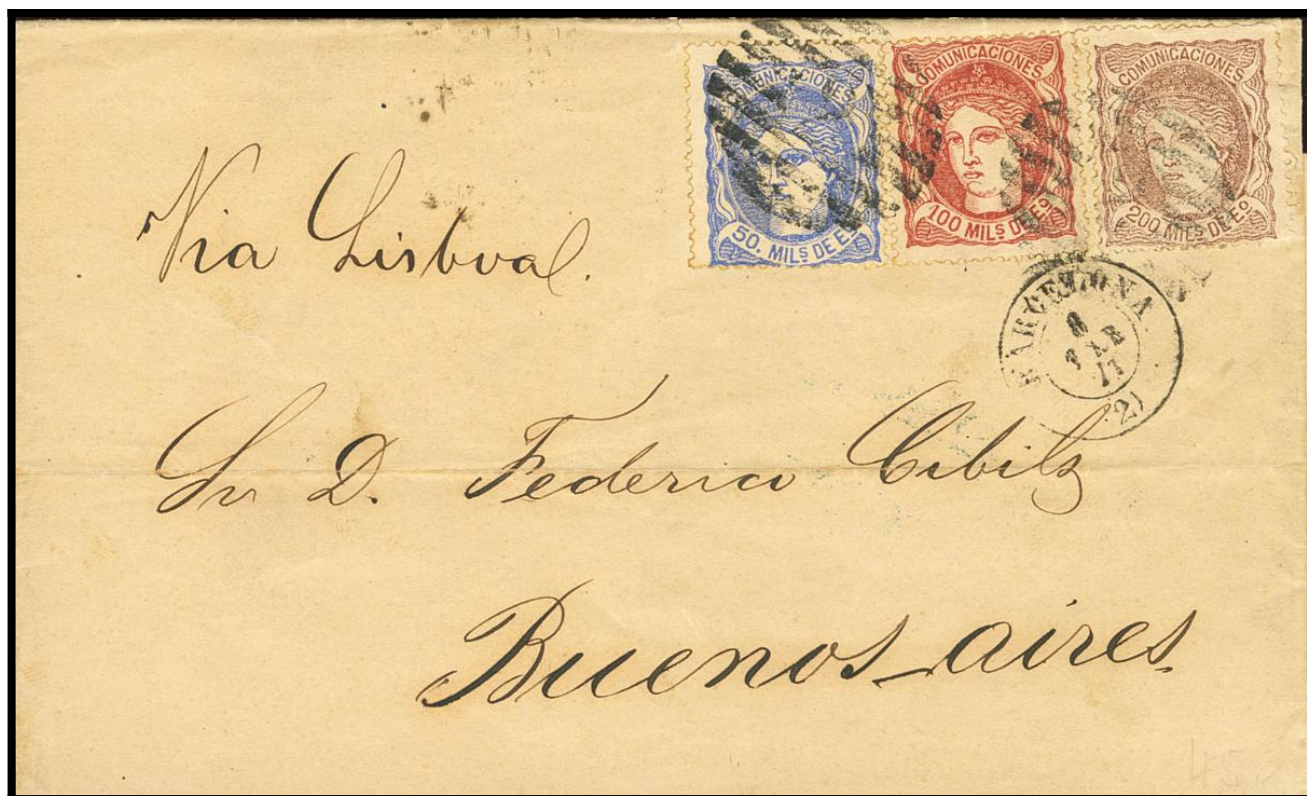 COMUNICACIONES
50. MILS DE Eo
COMUNICACIONES
100 MILS DE Eo
COMUNICACIONES
200 MILS DE Eo
Via Lisboa.
BARCELONA
8
71
(2)
Sr D. Federico Cibils
Buenos-aires